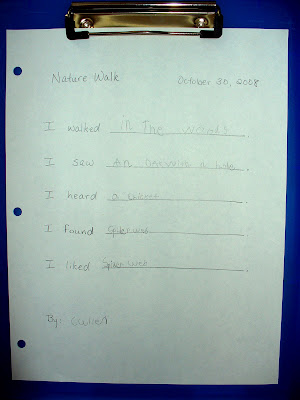 Nature Walk October 30, 2008
I walked in The woods.
I saw an with a hole.
I heard a.
I found Spider web.
I liked Spider web.
By: